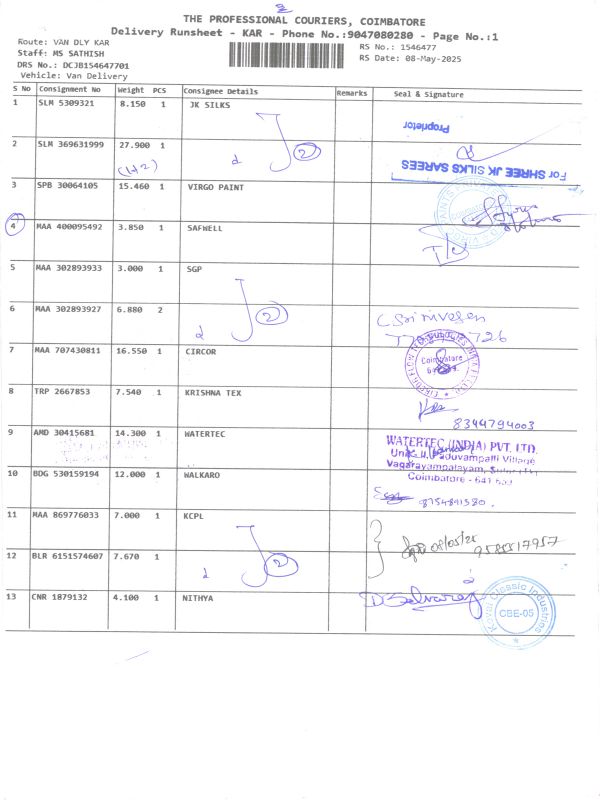 2
THE PROFESSIONAL COURIERS, COIMBATORE
Delivery Runsheet - KAR - Phone No.:9047080280 - Page No.:1
Route: VAN DLY KAR
Staff: MS SATHISH
DRS No.: DCJB154647701
Vehicle: Van Delivery
RS No.: 1546477
RS Date: 08-May-2025
S No Consignment No Weight PCS Consignee Details Remarks Seal & Signature
1 SLM 5309321 8.150 1 JK SILKS
Proprietor
2 SLM 369631999 27.900 1
(1+2) d 2
For SHREE JK SILKS SAREES
3 SPB 30064105 15.460 1 VIRGO PAINT
4 MAA 400095492 3.850 1 SAFWELL
5 MAA 302893933 3.000 1 SGP
6 MAA 302893927 6.880 2
d 2
C Srinivasen
7 MAA 707430811 16.550 1 CIRCOR
Coimbatore
8 TRP 2667853 7.540 1 KRISHNA TEX
8344794003
9 AMD 30415681 14.300 1 WATERTEC
WATERTEC (INDIA) PVT. LTD.
Unit: II, Paduvampalli Village
Vagarayampalayam,
Coimbatore - 641
10 BDG 530159194 12.000 1 WALKARO
8754841580.
11 MAA 869776033 7.000 1 KCPL
08/05/25
12 BLR 6151574607 7.670 1
d 2
13 CNR 1879132 4.100 1 NITHYA
D Selvaraj
Kovai Classic Industries
CBE-05